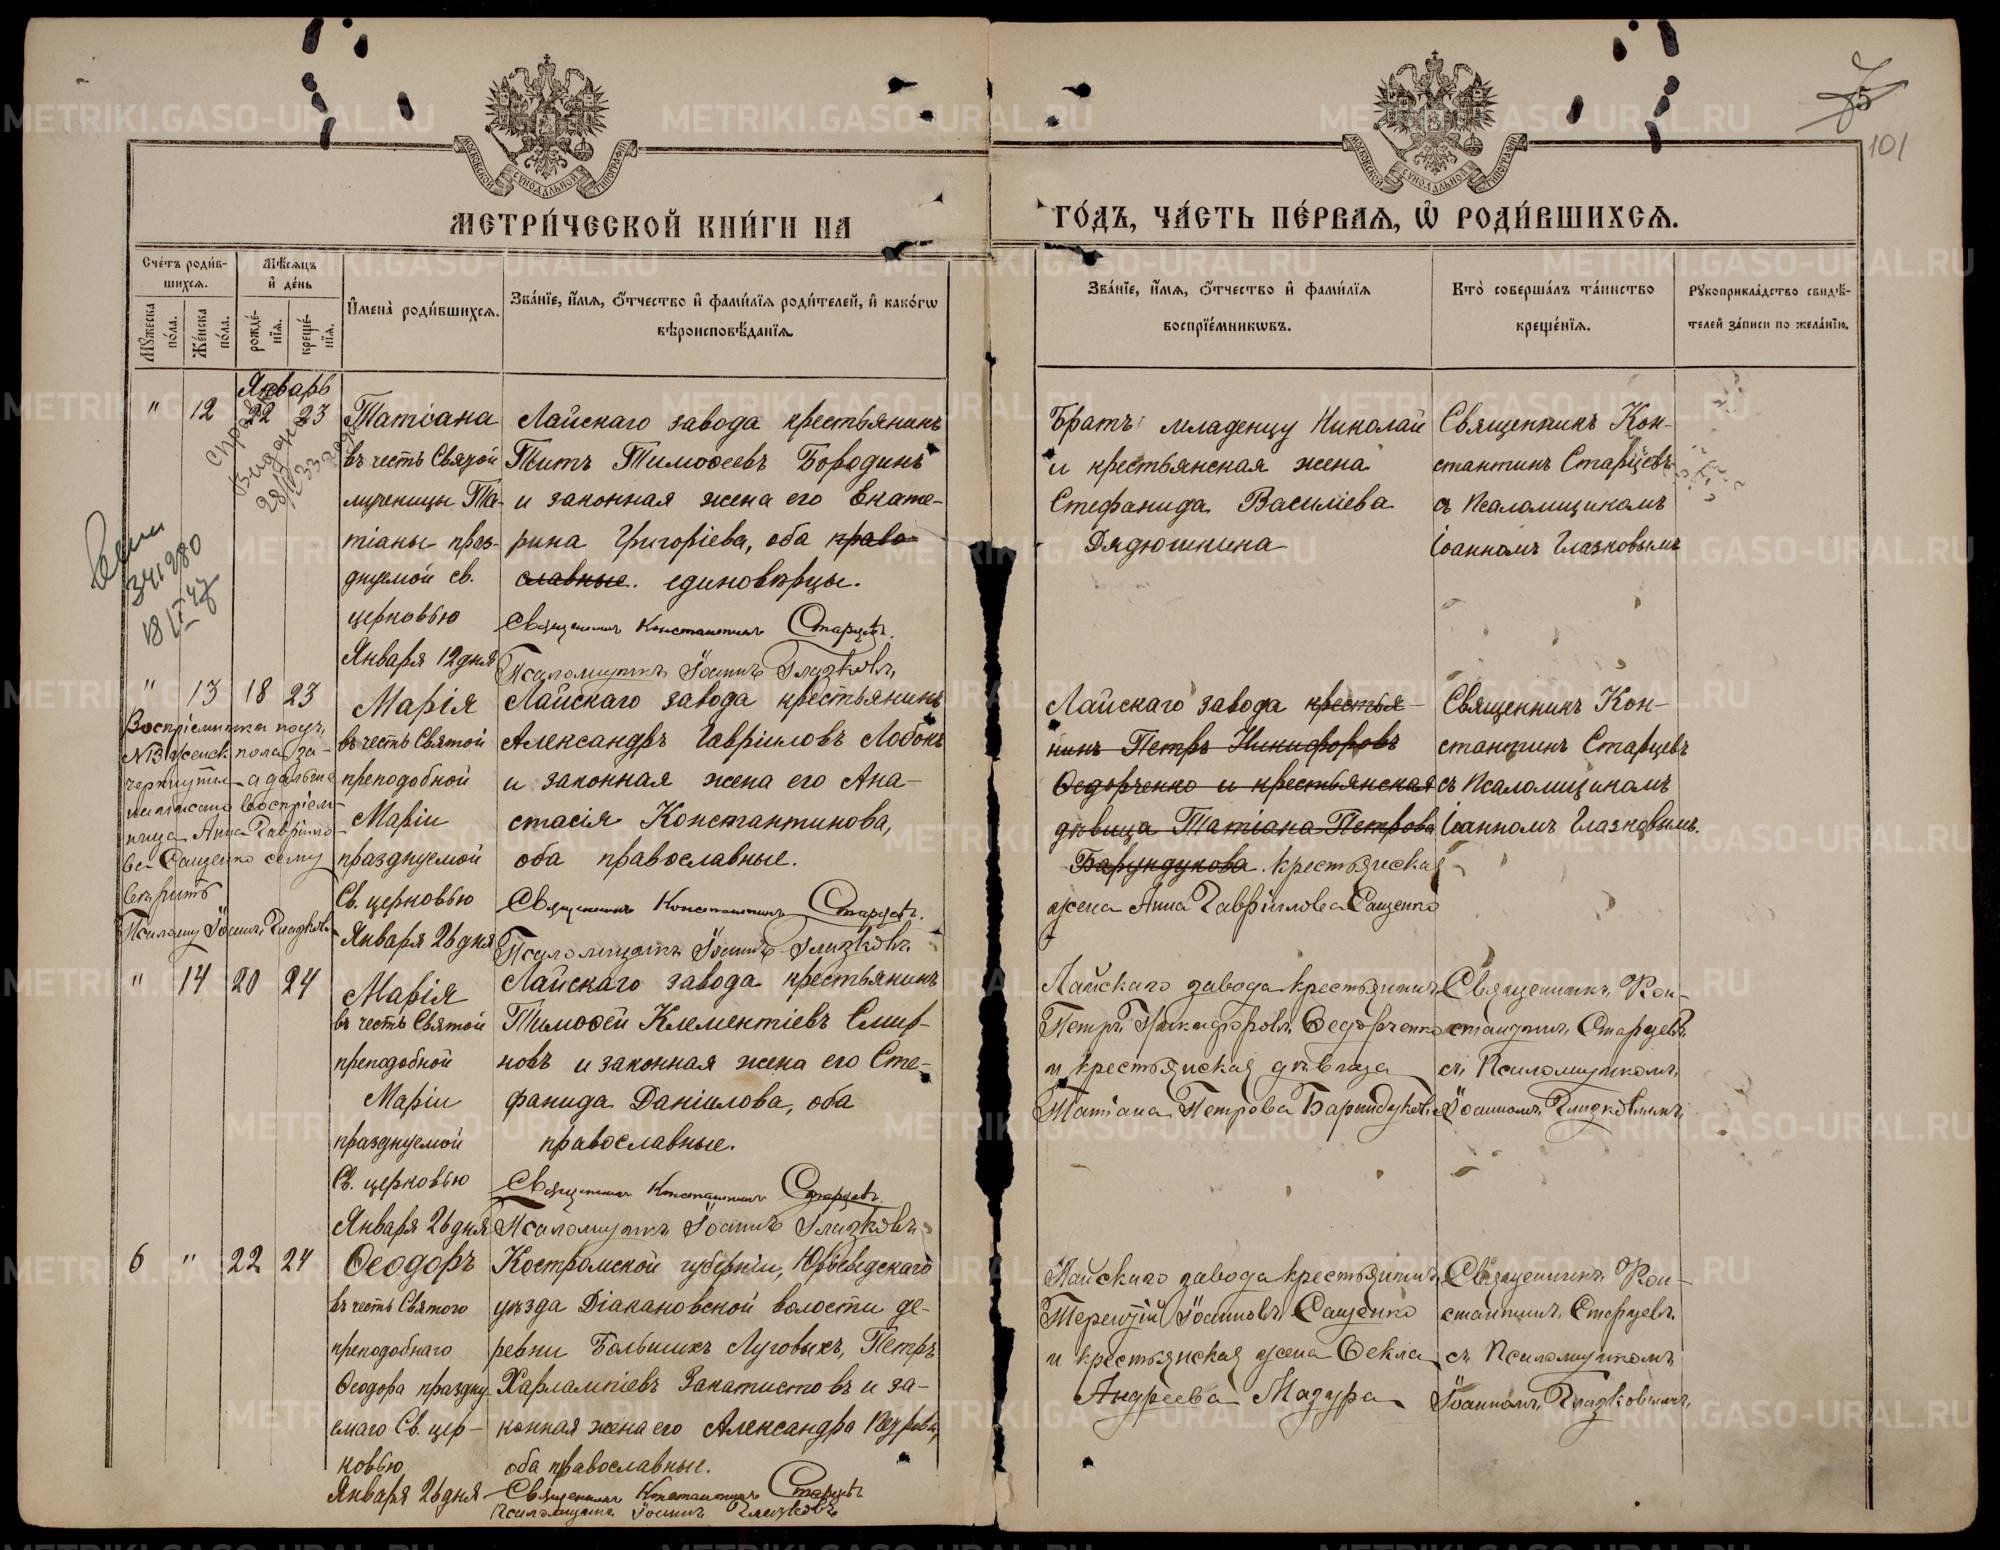 75
101
МОСКОВСКОЙ СѴНОДАЛЬНОЙ ТИПОГРАФІИ
МОСКОВСКОЙ СѴНОДАЛЬНОЙ ТИПОГРАФІИ
МЕТРИ́ЧЕСКОЙ КНИ́ГИ НА
ГО́ДЪ, ЧА́СТЬ ПЕ́РВАѦ, Ѽ РОДИ́ВШИХСѦ.
Сче́тъ роди́в-
шихсѧ.
Мꙋ́жеска по́ла.
Же́нска по́ла.
Мѣ́сѧцъ
и҆ де́нь
рожде́-
нїѧ.
креще́-
нїѧ.
И҆мена̀ роди́вшихсѧ.
Зва́нїе, и҆́мѧ, ѻ҆́тчество и҆ фами́лїѧ роди́телей, и҆ како́гѡ
вѣроисповѣ́данїѧ.
Зва́нїе, и҆́мѧ, ѻ҆́тчество и҆ фами́лїѧ
воспрїе́мникѡвъ.
Кто̀ соверша́лъ та́инство
креще́нїѧ.
Рꙋкоприкла́дство свидѣ́-
телей за́писи по жела́нїю.
Январь
" 12 22 23
Татіана
въ честь Святой
мученицы Та-
тіаны праз-
днуемой св.
церковью
Января 12 дня
Лайскаго завода крестьянинъ
Титъ Тимоѳеевъ Бородинъ
и законная жена его Екате-
рина Григоріева, оба право-
славные. единовѣрцы.
Священникъ Константинъ Старцевъ.
Псаломщикъ Іоаннъ Глазковъ
Братъ младенцу Николай
и крестьянская жена
Стефанида Василіева
Дядюшкина
Священникъ Кон-
стантинъ Старцевъ
съ Псаломщикомъ
Іоанномъ Глазковымъ
28/IV 33 года
341980
18/IV 47
" 13 18 23
Воспріемники подъ
№13 женск. пола за-
черкнуты, а дальше
написано воспріем-
ница Анна Гавріило-
ва Саценко сему
вѣрить
Псаломщ. Іоаннъ Глазковъ
Марія
въ честь Святой
преподобной
Маріи
празднуемой
Св. церковью
Января 26 дня
Лайскаго завода крестьянинъ
Александръ Гавріиловъ Лобокъ
и законная жена его Ана-
стасія Константинова,
оба православные.
Священникъ Константинъ Старцевъ.
Псаломщикъ Іоаннъ Глазковъ
Лайскаго завода крестья-
нинъ Петръ Никифоровъ
Ѳедорченко и крестьянская
дѣвица Татіана Петрова
Барундукова. крестьянская
жена Анна Гавріилова Саценко
Священникъ Кон-
стантинъ Старцевъ
съ Псаломщикомъ
Іоанномъ Глазковымъ.
" 14 20 24
Марія
въ честь Святой
преподобной
Маріи
празднуемой
Св. церковью
Января 26 дня
Лайскаго завода крестьянинъ
Тимоѳей Клементіевъ Смир-
новъ и законная жена его Сте-
фанида Даніилова, оба
православные.
Священникъ Константинъ Старцевъ.
Псаломщикъ Іоаннъ Глазковъ
Лайскаго завода крестьянинъ
Петръ Никифоровъ Ѳедорченко
и крестьянская дѣвица
Татіана Петрова Барундукова
Священникъ Кон-
стантинъ Старцевъ
съ Псаломщикомъ
Іоанномъ Глазковымъ
6 " 22 24
Ѳеодоръ
въ честь Святого
преподобнаго
Ѳеодора праздну-
емаго Св. цер-
ковью
Января 26 дня
Костромской губерніи, Юрьеведскаго
уѣзда Діакановской волости де-
ревни Большихъ Луговыхъ, Петръ
Харлампіевъ Закатистовъ и за-
конная жена его Александра
оба православные.
Священникъ Константинъ Старцевъ
Псаломщикъ Іоаннъ Глазковъ
Лайскаго завода крестьянинъ
Терентій Іоанновъ Саценко
и крестьянская жена Ѳекла
Андреева Мазура
Священникъ Кон-
стантинъ Старцевъ
съ Псаломщикомъ
Іоанномъ Глазковымъ
METRIKI.GASO-URAL.RU